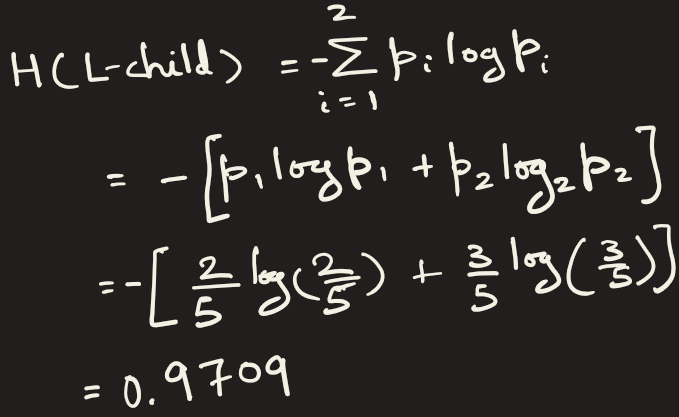 H(L-child) = -∑_{i=1}^{2} p_i log p_i
= - [p_1 log p_1 + p_2 log_2 p_2]
= - [2/5 log(2/5) + 3/5 log(3/5)]
= 0.9709